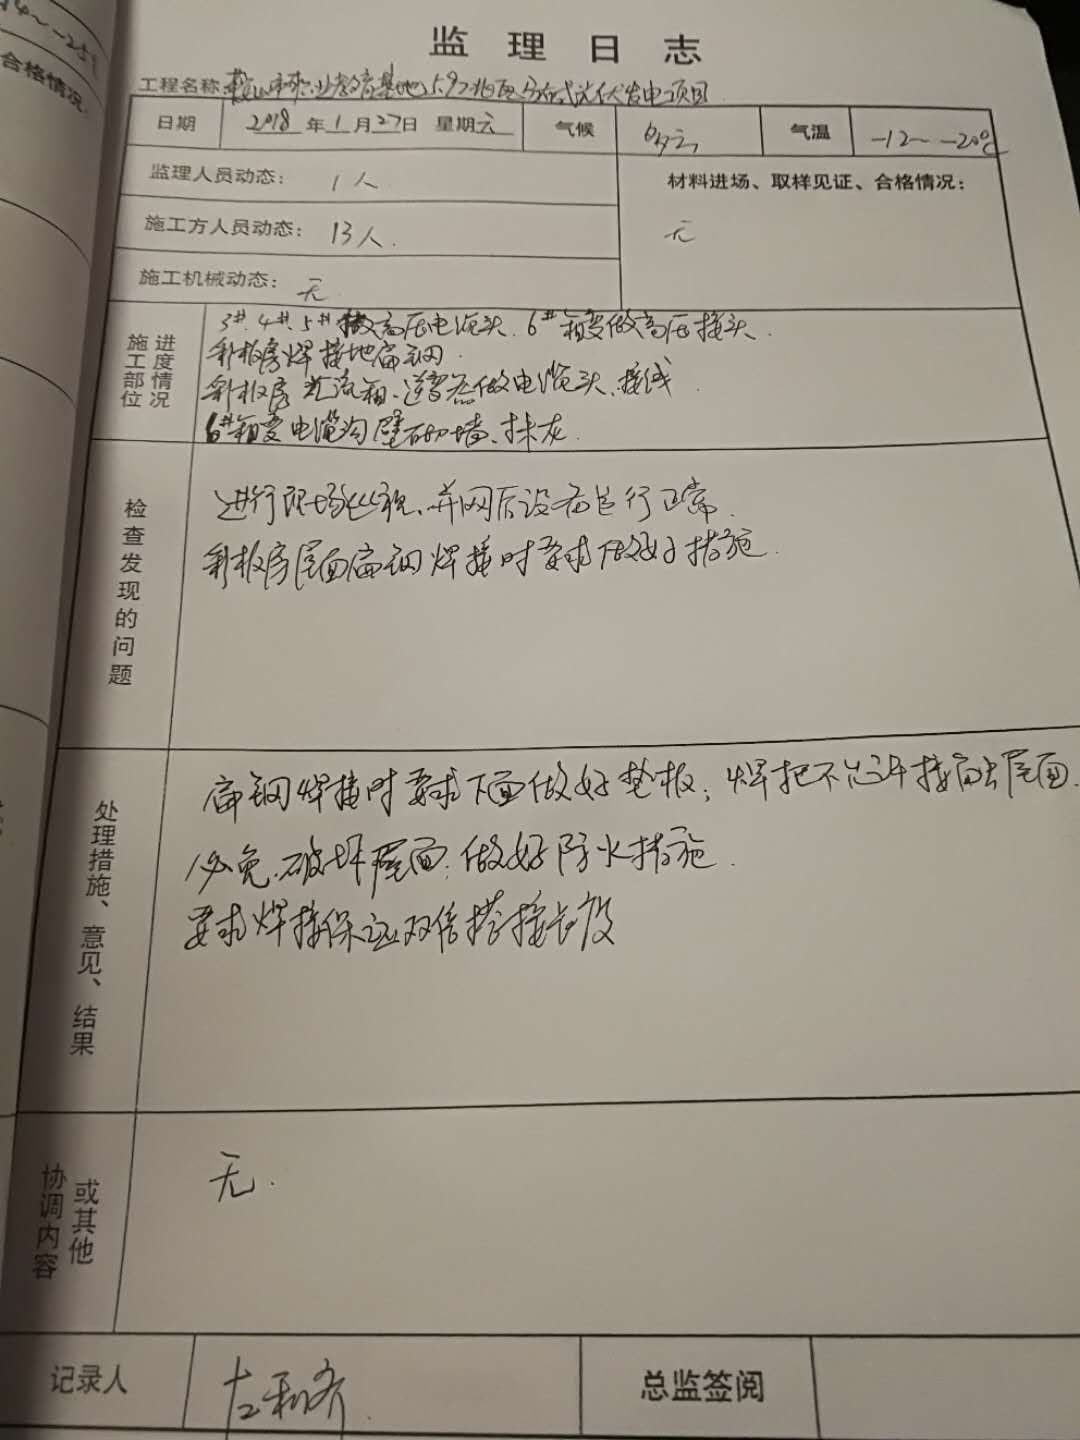 监理日志
工程名称：鞍山市职业教育基地5.92兆瓦分布式光伏发电项目
日期 2018年1月27日 星期六 气候 多云 气温 -12～-20℃
监理人员动态： 1人
材料进场、取样见证、合格情况：
无
施工方人员动态： 13人.
施工机械动态： 无
施工部位进度情况
3#.4#.5#做高压电缆头.6#箱变做高压接头.
彩板房焊接地扁钢.
彩板房汇流箱、逆变器做电缆头、接线
6#箱变电缆沟壁砌墙、抹灰.
检查发现的问题
进行现场巡视、并网后设备运行正常.
彩板房屋面扁钢焊接时要求做好措施.
处理措施、意见、结果
扁钢焊接时要求下面做好垫板；焊把不允许接触屋面.
以免破坏屋面；做好防火措施.
要求焊接保证双倍搭接长度
协调内容或其他
无.
记录人
总监签阅
合格情况